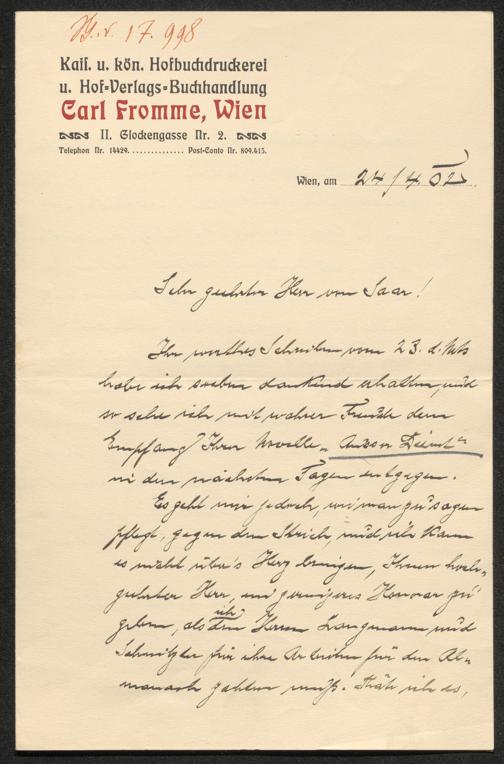 J. N. 17.998
Kais. u. kön. Hofbuchdruckerei
u. Hof-Verlags-Buchhandlung
Carl Fromme, Wien
II. Glockengasse Nr. 2.
Telephon Nr. 14429. .............. Post-Conto Nr. 809.415.
Wien, am 24/4. 02
Sehr geehrter Herr von Saar!
Ihr werthes Schreiben vom 23. d. Mts
habe ich soeben dankend erhalten, und
so sehe ich mit wahrer Freude dem
Empfang Ihrer Novelle „Ausser Dienst"
in den nächsten Tagen entgegen.
Es geht mir jedoch, wie man zu sagen
pflegt, gegen den Strich, und ich kann
es nicht über's Herz bringen, Ihnen hoch-
geehrter Herr, ein geringeres Honorar zu
geben, als ich den Herren Langmann und
Schnitzler für ihre Arbeiten für den Al-
manach zahlen muß. Thät ich es,